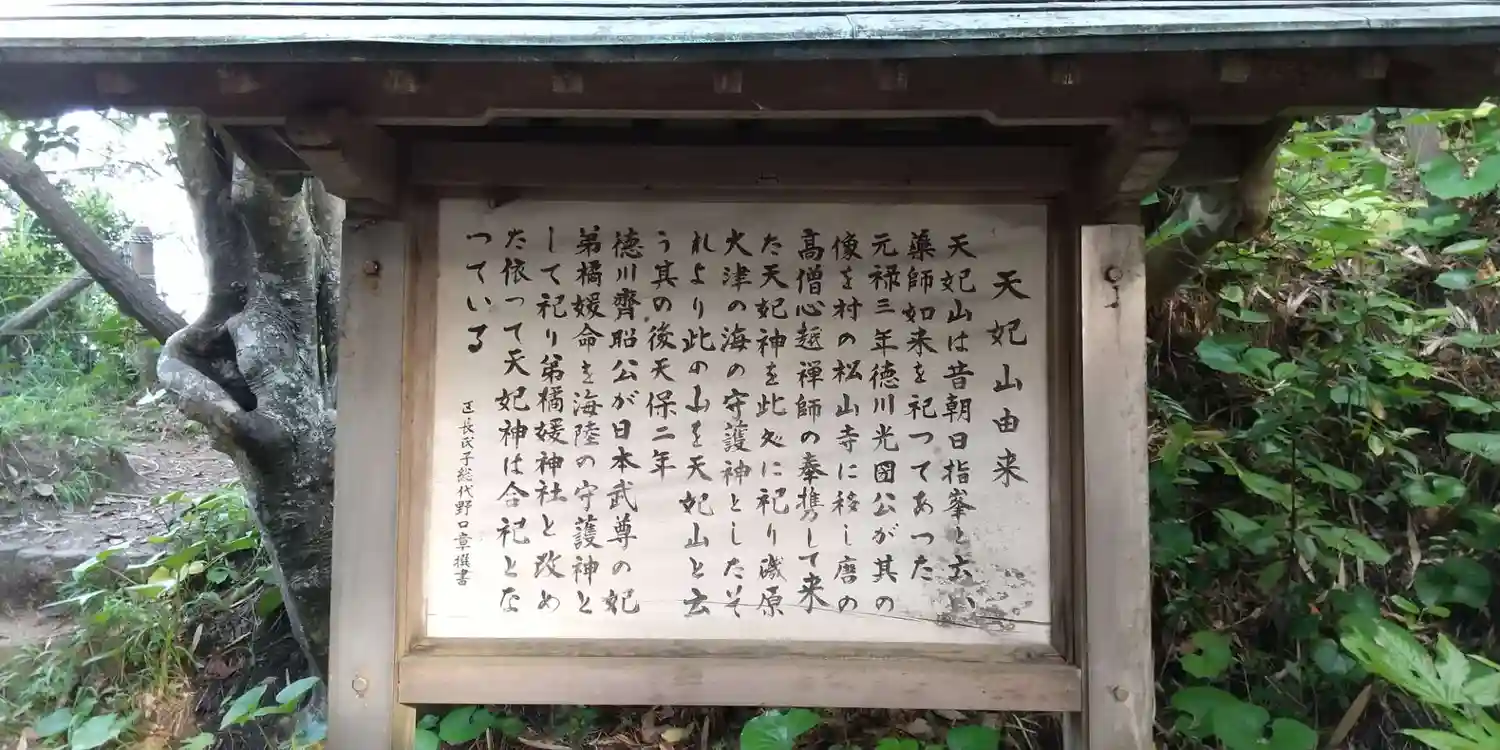 天妃山由来
天妃山は昔朝日指峯と云い
薬師如来を祀つてあつた
元禄三年徳川光圀公が其の
像を村の松山寺に移し唐の
高僧心越禅師の奉携して来
た天妃神を此処に祀り磯原
大津の海の守護神としたそ
れより此の山を天妃山と云
う其の後天保二年
徳川齊昭公が日本武尊の妃
弟橘媛命を海陸の守護神と
して祀り弟橘媛神社と改め
た依って天妃神は合祀とな
つている
氏子総代野口章撰書